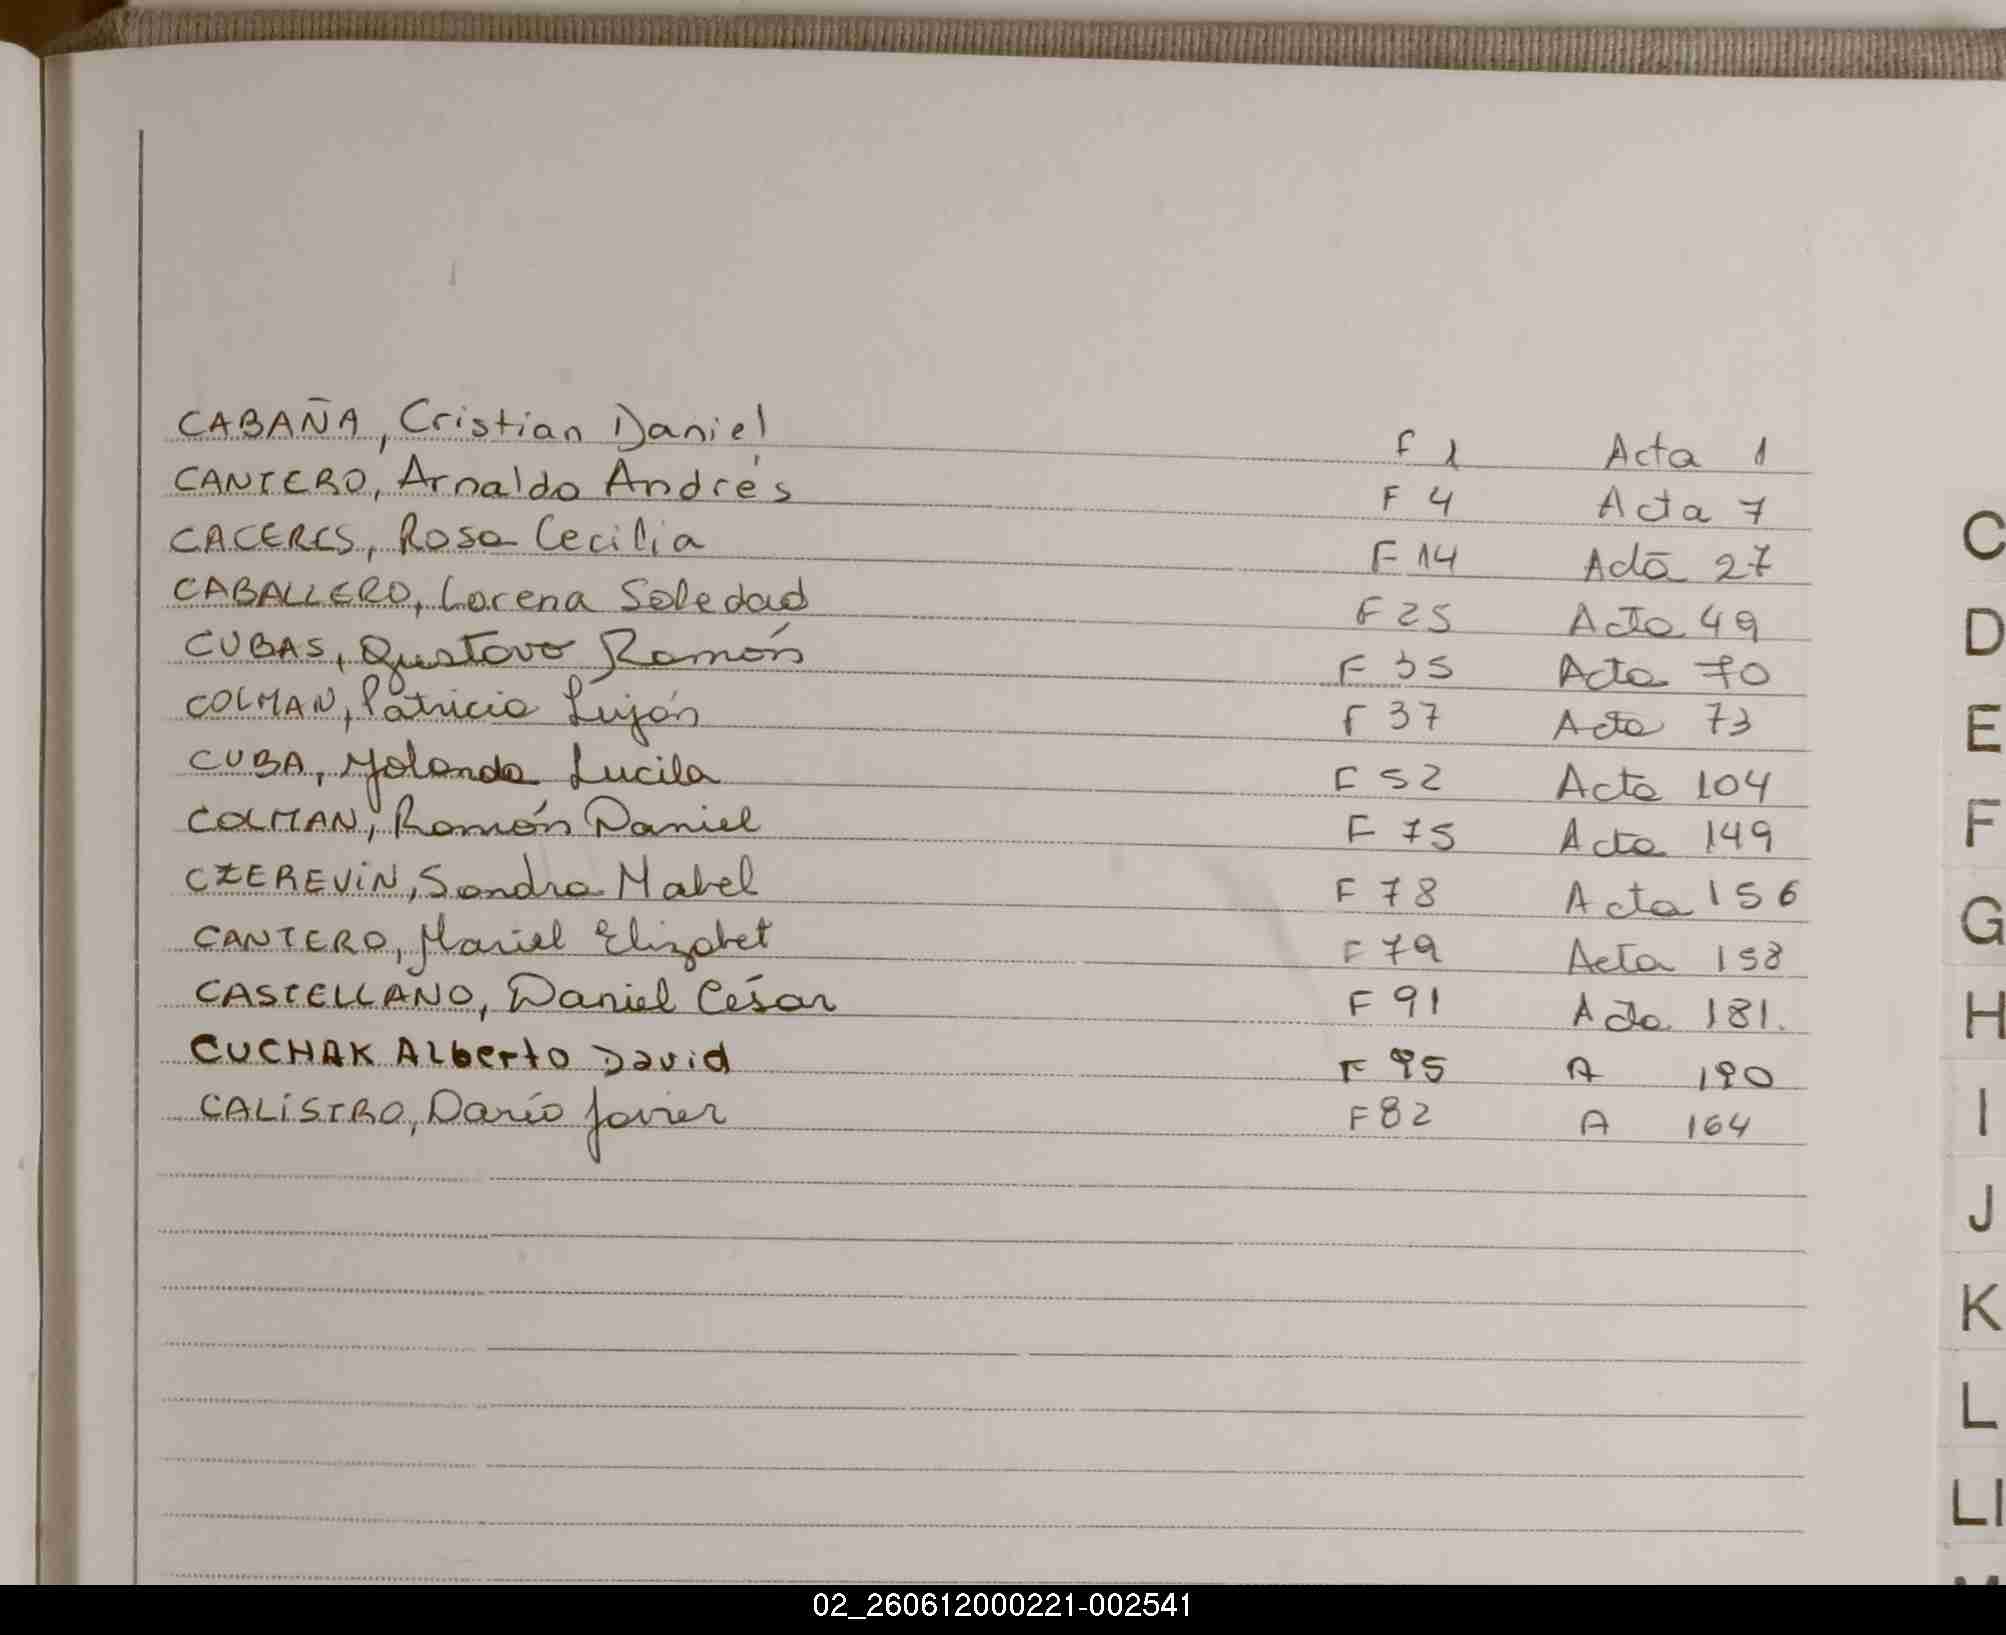 CABAÑA, Cristian Daniel F 1 Acta 1
CANTERO, Arnaldo Andrés F 4 Acta 7
CACERES, Rosa Cecilia F 14 Acta 27
CABALLERO, Lorena Soledad F 25 Acta 49
CUBAS, Gustavo Ramón F 35 Acta 70
COLMAN, Patricia Luján F 37 Acta 73
CUBA, Yolanda Lucila F 52 Acta 104
COLMAN, Ramón Daniel F 75 Acta 149
CZEREVIN, Sandra Mabel F 78 Acta 156
CANTERO, Mariel Elizabet F 79 Acta 158
CASTELLANO, Daniel César F 91 Acta 181.
CUCHAK Alberto David F 95 A 190
CALISTRO, Darío Javier F 82 A 164
C
D
E
F
G
H
I
J
K
L
Ll
02_260612000221-002541